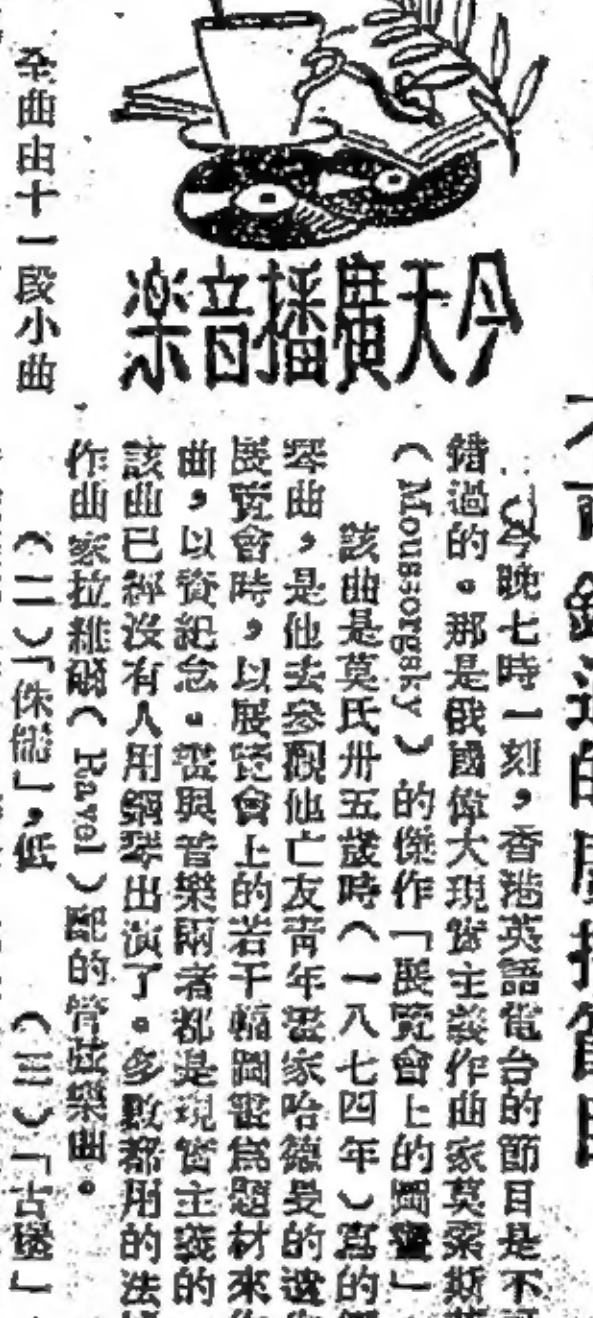 不可錯過的廣播節目
今天廣播音楽
今晚七時一刻，香港英語電台的節目是不可
錯過的。那是俄國偉大現實主義作曲家莫索斯
（Moussorgsky）的傑作「展覽會上的圖畫」
該曲是莫氏卅五歲時（一八七四年）寫的鋼
琴曲，是他去參觀他亡友青年畫家哈德曼的遺作
展覽會時，以展覽會上的若干幅圖畫爲題材來作
曲，以資紀念。畫與音樂兩者都是現實主義的
該曲已經沒有人用鋼琴出演了。多數都用的法
作曲家拉維爾（Ravel）配的管弦樂曲。
全曲由十一段小曲
（二）「侏儒」，低
（三）「古堡」